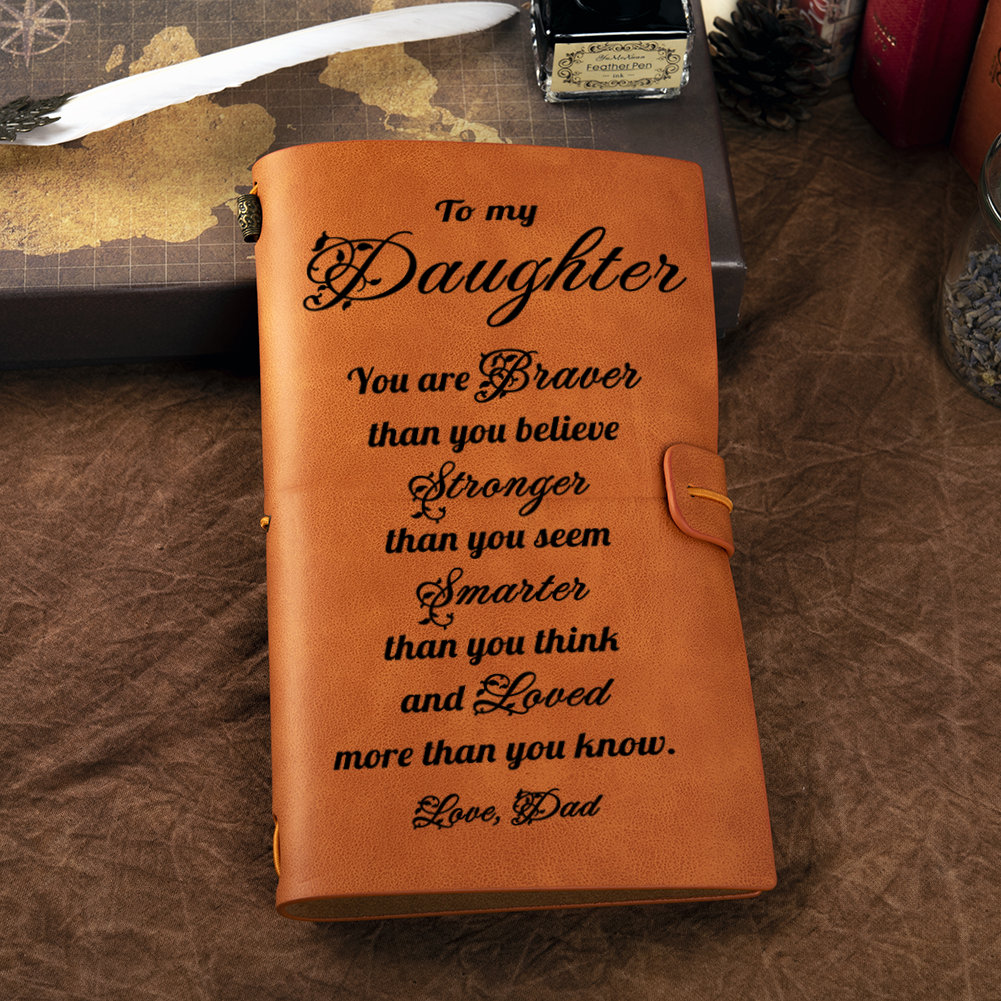 Feather Pen
ink
To my
Daughter
You are Braver
than you believe
Stronger
than you seem
Smarter
than you think
and Loved
more than you know.
Love, Dad